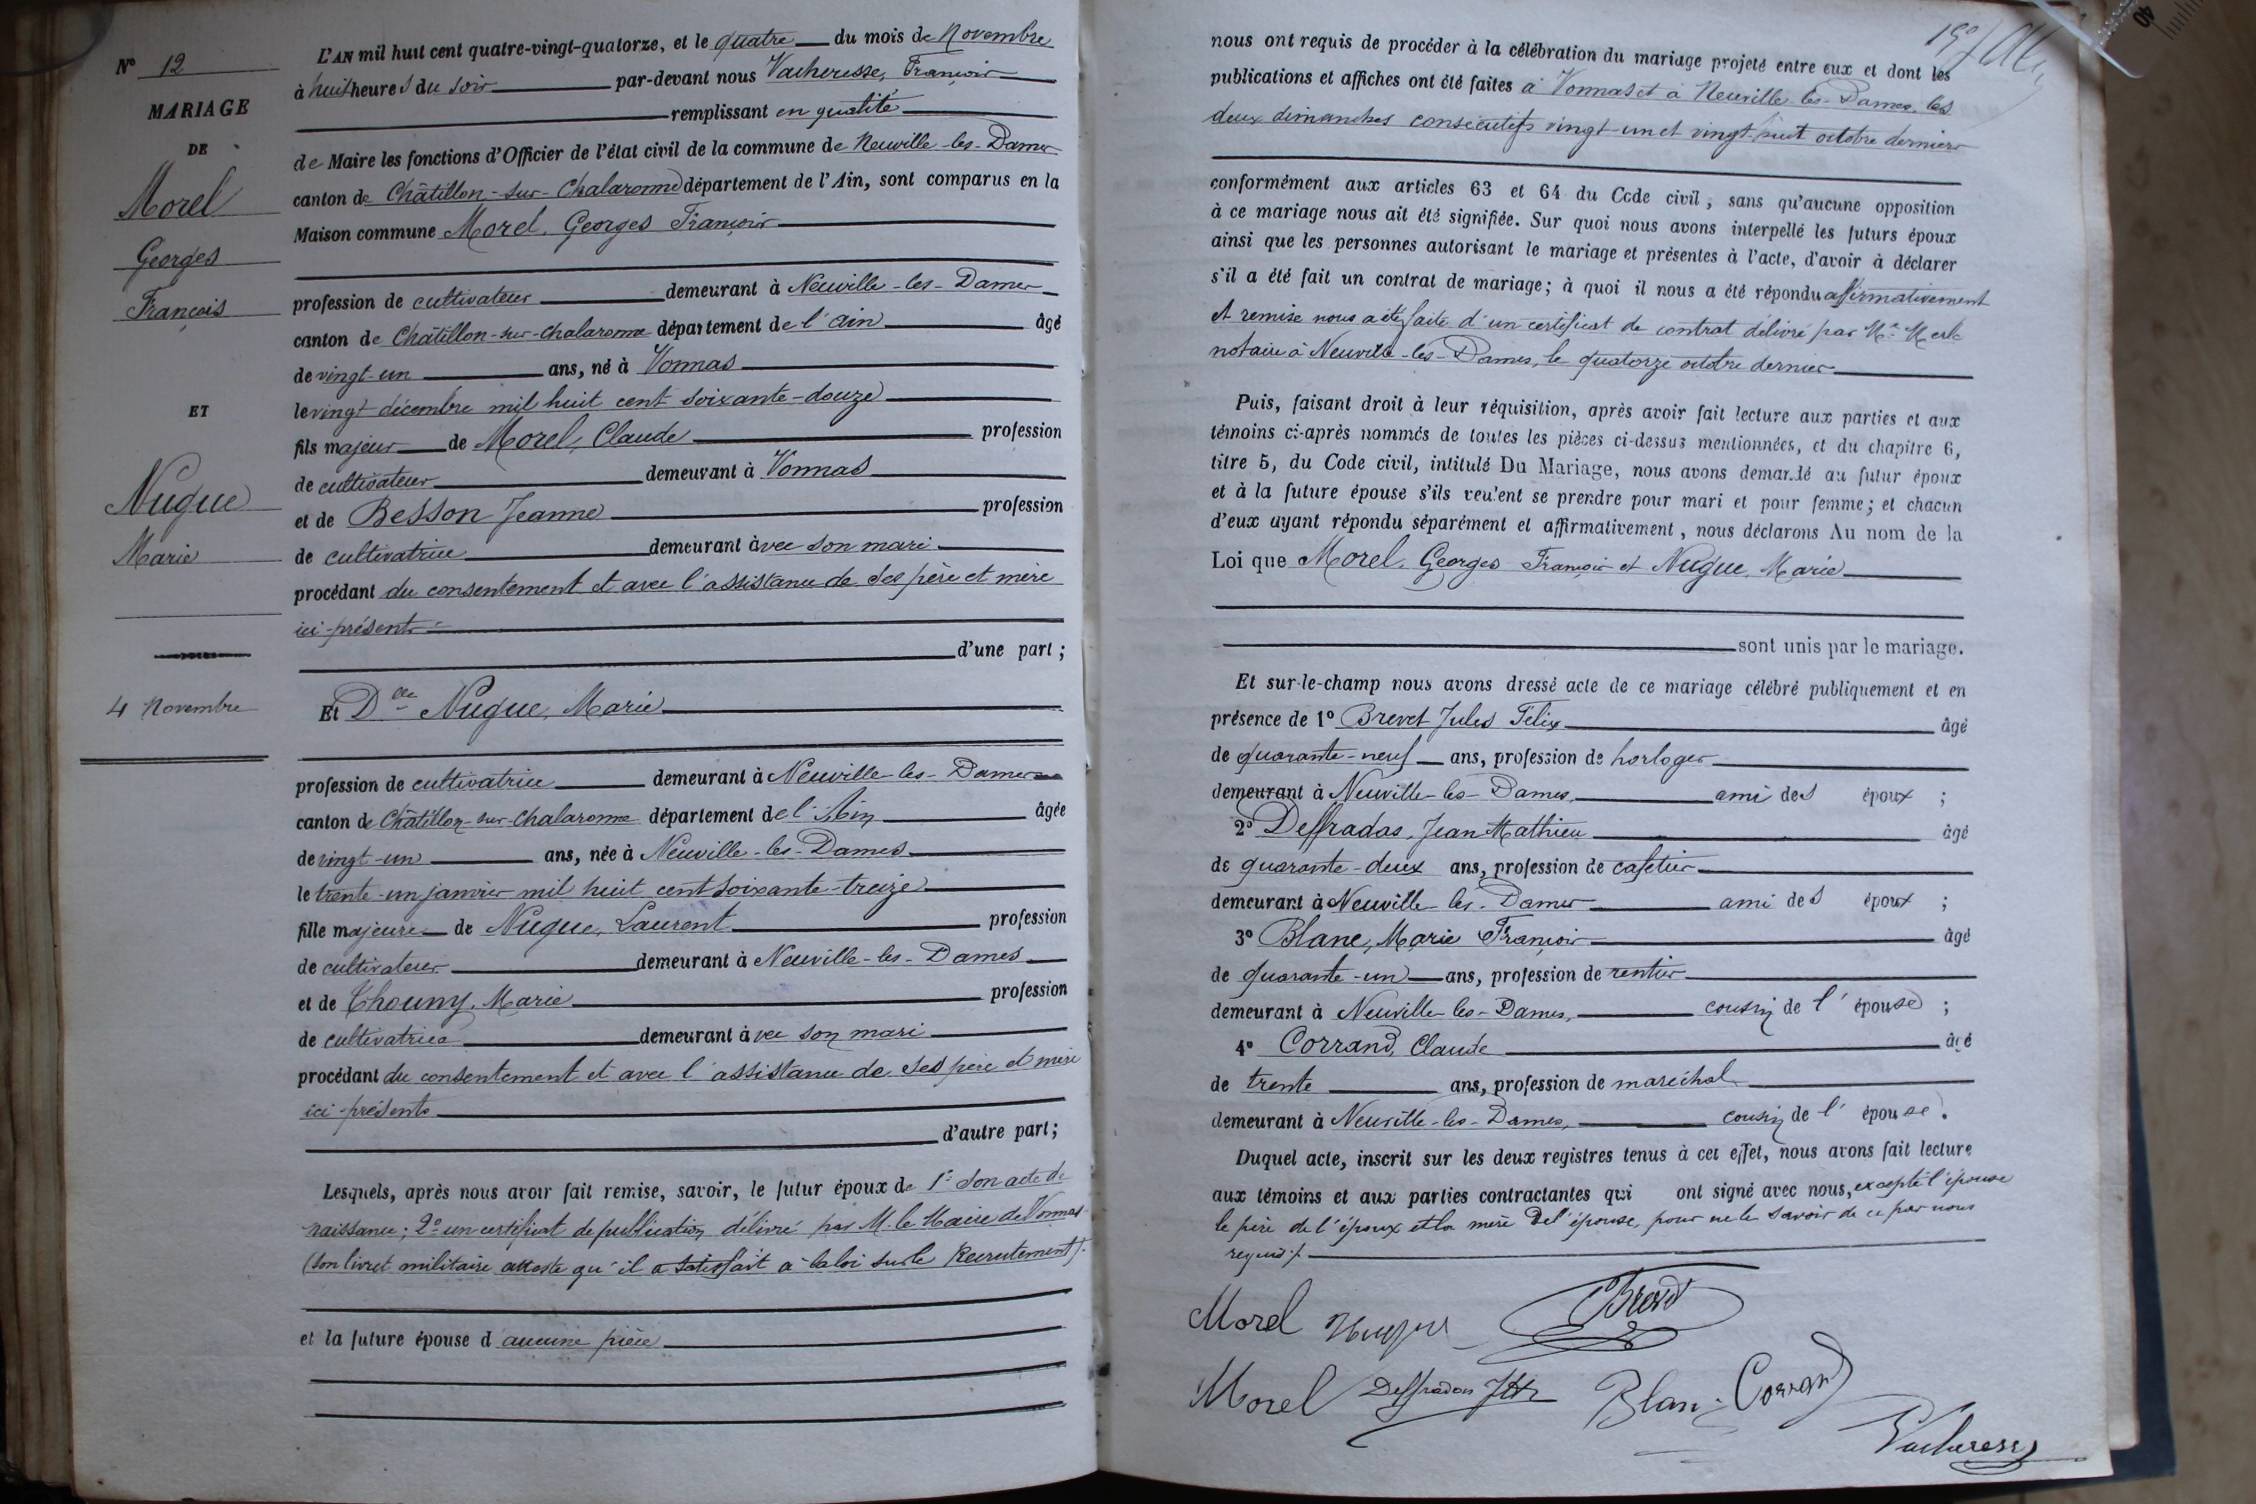 N° 12
MARIAGE
DE
Morel
Georges
François
ET
Nugue
Marie
4 Novembre
L'AN mil huit cent quatre-vingt-quatorze, et le quatre du mois de Novembre
à huit heures du soir par-devant nous Vacheresse, François
remplissant en qualité
de Maire les fonctions d'Officier de l'état civil de la commune de Neuville-les-Dames
canton de Châtillon-sur-Chalaronne département de l'Ain, sont comparus en la
Maison commune Morel, Georges François
profession de cultivateur demeurant à Neuville-les-Dames
canton de Châtillon-sur-Chalaronne département de l'Ain âgé
de vingt-un ans, né à Vonnas
le vingt décembre mil huit cent soixante-douze
fils majeur de Morel, Claude profession
de cultivateur demeurant à Vonnas
et de Besson Jeanne profession
de cultivatrice demeurant avec son mari
procédant du consentement et avec l'assistance de ses père et mère
ici présents
d'une part ;
Et Dlle Nugue, Marie
profession de cultivatrice demeurant à Neuville-les-Dames
canton de Châtillon-sur-Chalaronne département de l'Ain âgée
de vingt-un ans, née à Neuville-les-Dames
le trente-un janvier mil huit cent soixante-treize
fille majeure de Nugue, Laurent profession
de cultivateur demeurant à Neuville-les-Dames
et de Chouny, Marie profession
de cultivatrice demeurant avec son mari
procédant du consentement et avec l'assistance de ses père et mère
ici présents
d'autre part ;
Lesquels, après nous avoir fait remise, savoir, le futur époux de 1° son acte de
naissance ; 2° un certificat de publication délivré par M. le Maire de Vonnas
(son livret militaire atteste qu'il a satisfait à la loi sur le Recrutement).
et la future épouse d'aucune pièce
nous ont requis de procéder à la célébration du mariage projeté entre eux et dont les
publications et affiches ont été faites à Vonnas et à Neuville-les-Dames, les
deux dimanches consécutifs vingt-un et vingt-huit octobre dernier
conformément aux articles 63 et 64 du Code civil, sans qu'aucune opposition
à ce mariage nous ait été signifiée. Sur quoi nous avons interpellé les futurs époux
ainsi que les personnes autorisant le mariage et présentes à l'acte, d'avoir à déclarer
s'il a été fait un contrat de mariage ; à quoi il nous a été répondu affirmativement
et remise nous a été faite d'un certificat de contrat délivré par Me
notaire à Neuville-les-Dames, le quatorze octobre dernier
Puis, faisant droit à leur réquisition, après avoir fait lecture aux parties et aux
témoins ci-après nommés de toutes les pièces ci-dessus mentionnées, et du chapitre 6,
titre 5, du Code civil, intitulé Du Mariage, nous avons demandé au futur époux
et à la future épouse s'ils veulent se prendre pour mari et pour femme ; et chacun
d'eux ayant répondu séparément et affirmativement, nous déclarons Au nom de la
Loi que Morel, Georges François et Nugue, Marie
sont unis par le mariage.
Et sur-le-champ nous avons dressé acte de ce mariage célébré publiquement et en
présence de 1° Brevet Jules Félix âgé
de quarante-neuf ans, profession de horloger
demeurant à Neuville-les-Dames, ami des époux ;
2° Deffradas, Jean Mathieu âgé
de quarante-deux ans, profession de cafetier
demeurant à Neuville-les-Dames ami des époux ;
3° Blanc, Marie François âgé
de quarante-un ans, profession de rentier
demeurant à Neuville-les-Dames, cousin de l'épouse ;
4° Corrand, Claude âgé
de trente ans, profession de maréchal
demeurant à Neuville-les-Dames, cousin de l'épouse.
Duquel acte, inscrit sur les deux registres tenus à cet effet, nous avons fait lecture
aux témoins et aux parties contractantes qui ont signé avec nous, excepté l'épouse
le père de l'époux et la mère de l'épouse, pour ne le savoir de ce par nous
requis
Morel Nugue Brevet
Morel Deffradas Blanc Corrand
Vacheresse
40